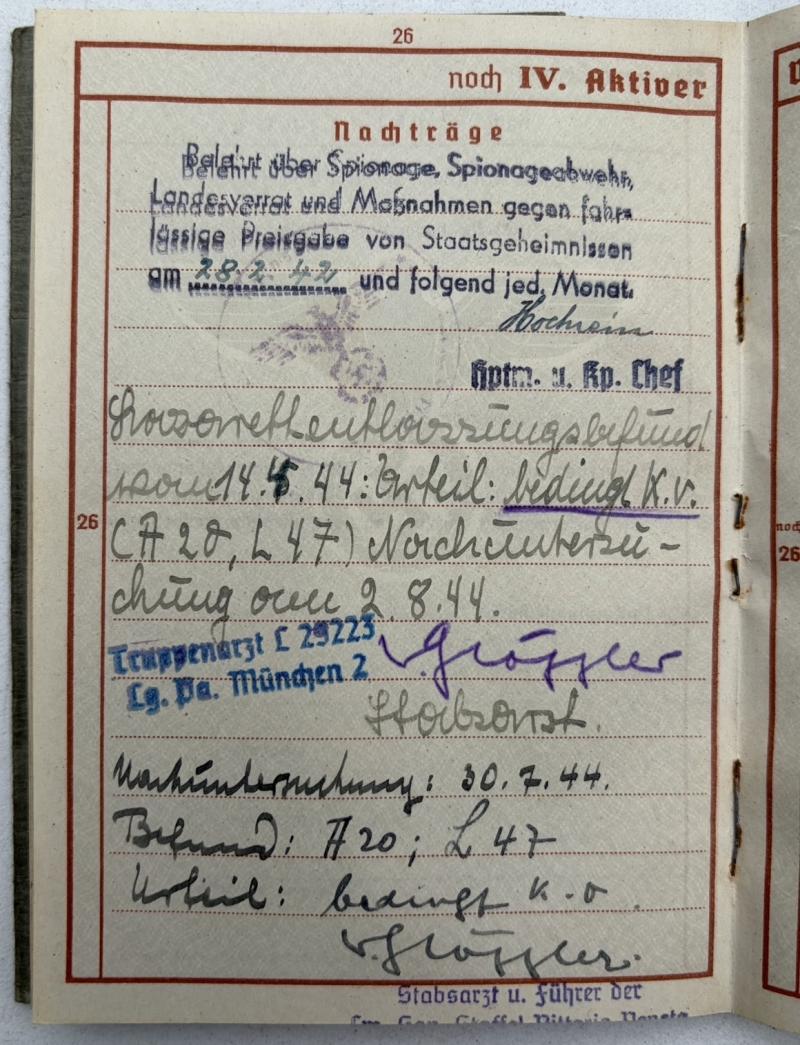 26
noch IV. Aktiver
Nachträge
Belehrt über Spionage, Spionageabwehr,
Landesverrat und Maßnahmen gegen fahr-
lässige Preisgabe von Staatsgeheimnissen
am 28.2.42 und folgend jed. Monat.
Hochrein
Hptm. u. Kp. Chef
Lazarettentlassungsbefund
vom 14.4.44: Urteil: bedingt K.v.
26
(A 20, L 47) Nachuntersu-
chung am 2.8.44.
Truppenarzt L 29223
Lg. Pa. München 2
v. Glößler
Stabsarzt.
Nachuntersuchung: 30.7.44.
Befund: A 20; L 47
Urteil: bedingt k.v.
v. Glößler.
Stabsarzt u. Führer der
noch
26